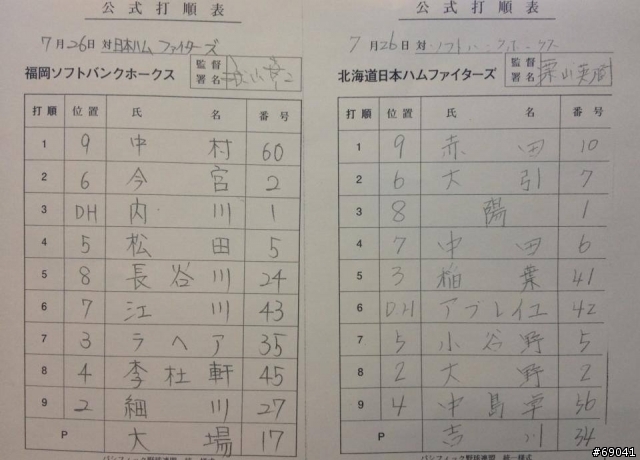 公式打順表
7月26日 対 日本ハム ファイターズ
福岡ソフトバンクホークス 監督署名
打順 位置 氏名 番号
1 9 中村 60
2 6 今宮 2
3 DH 内川 1
4 5 松田 5
5 8 長谷川 24
6 7 江川 43
7 3 ラヘア 35
8 4 李杜軒 45
9 2 細川 27
P 大場 17
パシフィック野球連盟 統一様式
公式打順表
7月26日 対 ソフトバンクホークス
北海道日本ハムファイターズ 監督署名 栗山英樹
打順 位置 氏名 番号
1 9 赤田 10
2 6 大引 7
3 8 陽 1
4 7 中田 6
5 3 稲葉 41
6 D.H アブレイユ 42
7 5 小谷野 5
8 2 大野 2
9 4 中島卓 56
P 吉川 34
パシフィック野球連盟 統一様式
#69041